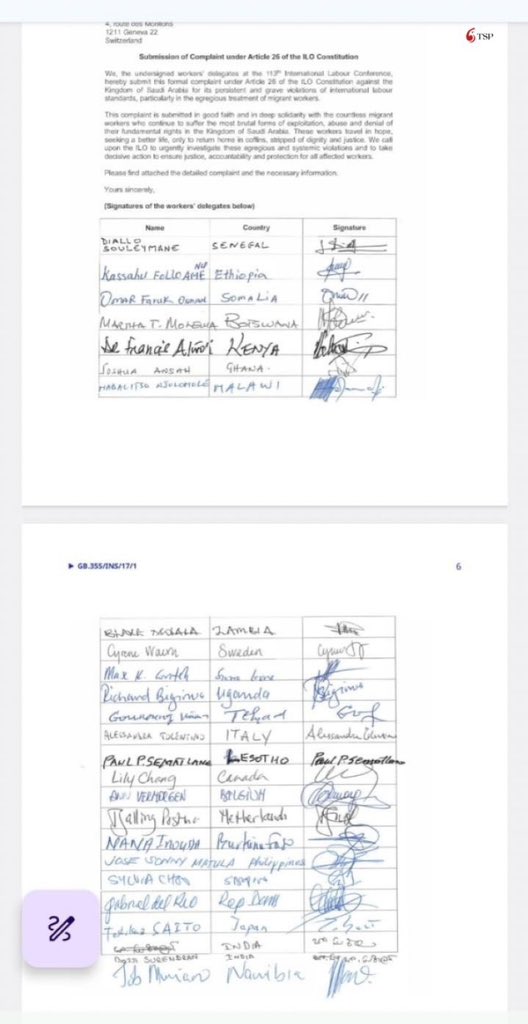 4, route des Morillons
1211 Geneva 22
Switzerland
TSP
Submission of Complaint under Article 26 of the ILO Constitution
We, the undersigned workers' delegates at the 113th International Labour Conference,
hereby submit this formal complaint under Article 26 of the ILO Constitution against the
Kingdom of Saudi Arabia for its persistent and grave violations of international labour
standards, particularly in the egregious treatment of migrant workers.
This complaint is submitted in good faith and in deep solidarity with the countless migrant
workers who continue to suffer the most brutal forms of exploitation, abuse and denial of
their fundamental rights in the Kingdom of Saudi Arabia. These workers travel in hope,
seeking a better life, only to return home in coffins, stripped of dignity and justice. We call
upon the ILO to urgently investigate these egregious and systemic violations and to take
decisive action to ensure justice, accountability and protection for all affected workers.
Please find attached the detailed complaint and the necessary information.
Yours sincerely,
(Signatures of the workers' delegates below)
Name Country Signature
DIALLO
SOULEYMANE SENEGAL
Kassahun Follo AME Ethiopia
Omar Faruk Osman SOMALIA
MARTHA T. BOTSWANA
Francis KENYA
JOSHUA ANSAH GHANA.
MALAWI
GB.355/INS/17/1 6
ZAMBIA
Sweden
Max K. Sierra Leone
Richard Bigirwa Uganda
Tchad
ALESSANDRA TOLENTINO ITALY
PAUL P. SEMATLANE LESOTHO Paul P. Sematlane
Lily Chang Canada
ANN VERMORGEN BELGIUM
Tjalling Postma Netherlands
NANA Burkina Faso
JOSE SONNY MATULA Philippines
SYLVIA CHOO
Gabriel del Rio Rep Dom
SAITO Japan
INDIA
SURENDRAN INDIA
Job Muniaro Namibia